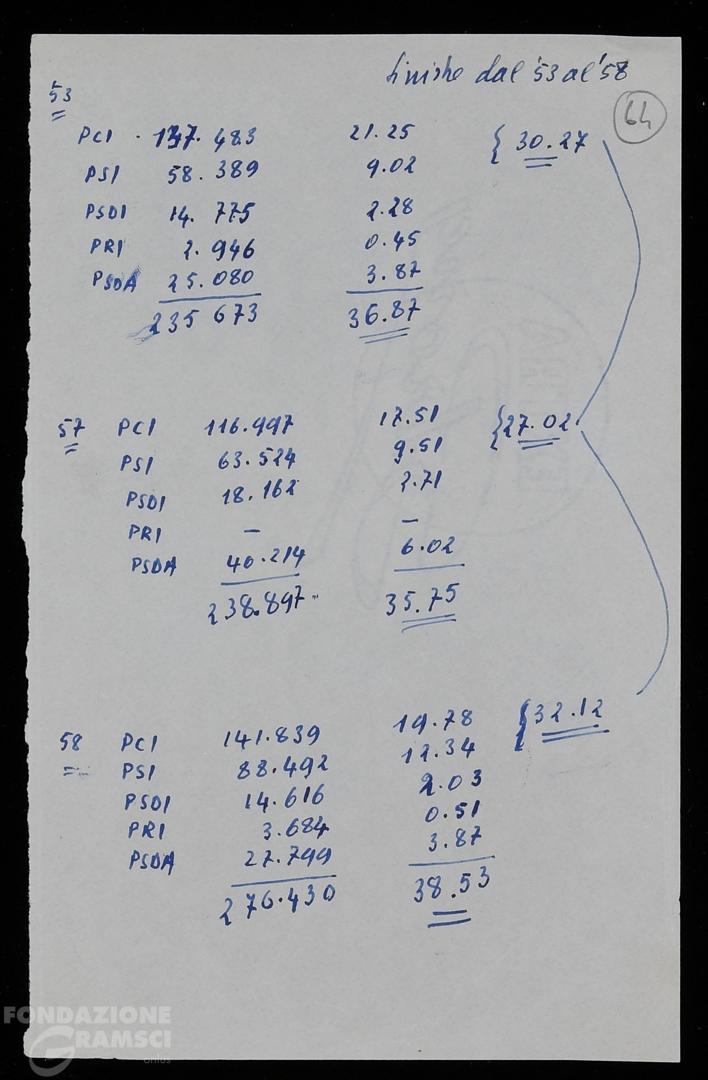 Sinistre dal '53 al '58
64
53
PCI . 137.483 21.25 { 30.27
PSI 58.389 9.02
PSDI 14.775 2.28
PRI 2.946 0.45
PSDA 25.080 3.87
235 673 36.87
57 PCI 116.997 17.51 { 27.02
PSI 63.524 9.51
PSDI 18.162 2.71
PRI — —
PSDA 40.214 6.02
238.897 35.75
58 PCI 141.839 19.78 { 32.12
PSI 88.492 12.34
PSDI 14.616 2.03
PRI 3.684 0.51
PSDA 27.799 3.87
276.430 38.53
FONDAZIONE
GRAMSCI
onlus